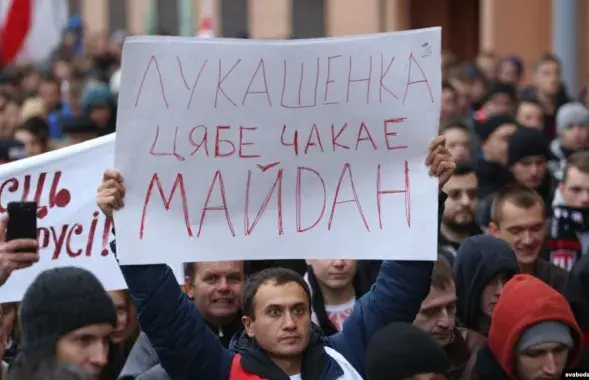 ЛУКАШЕНКА
ЦЯБЕ ЧАКАЕ
МАЙДАН
русі!
svaboda